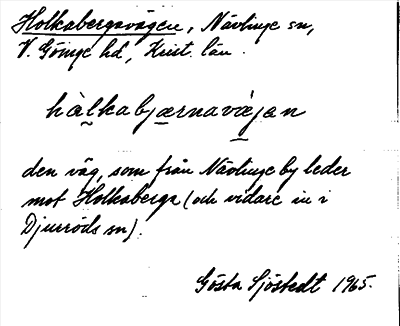 Holkabergavägen, Nävlinge sn,
V. Göinge hd, Krist. län.
hàlkabjærnavæjan
den väg, som från Nävlinge by leder
mot Holkaberga (och vidare in i
Djurröds sn).
Gösta Sjöstedt 1965.